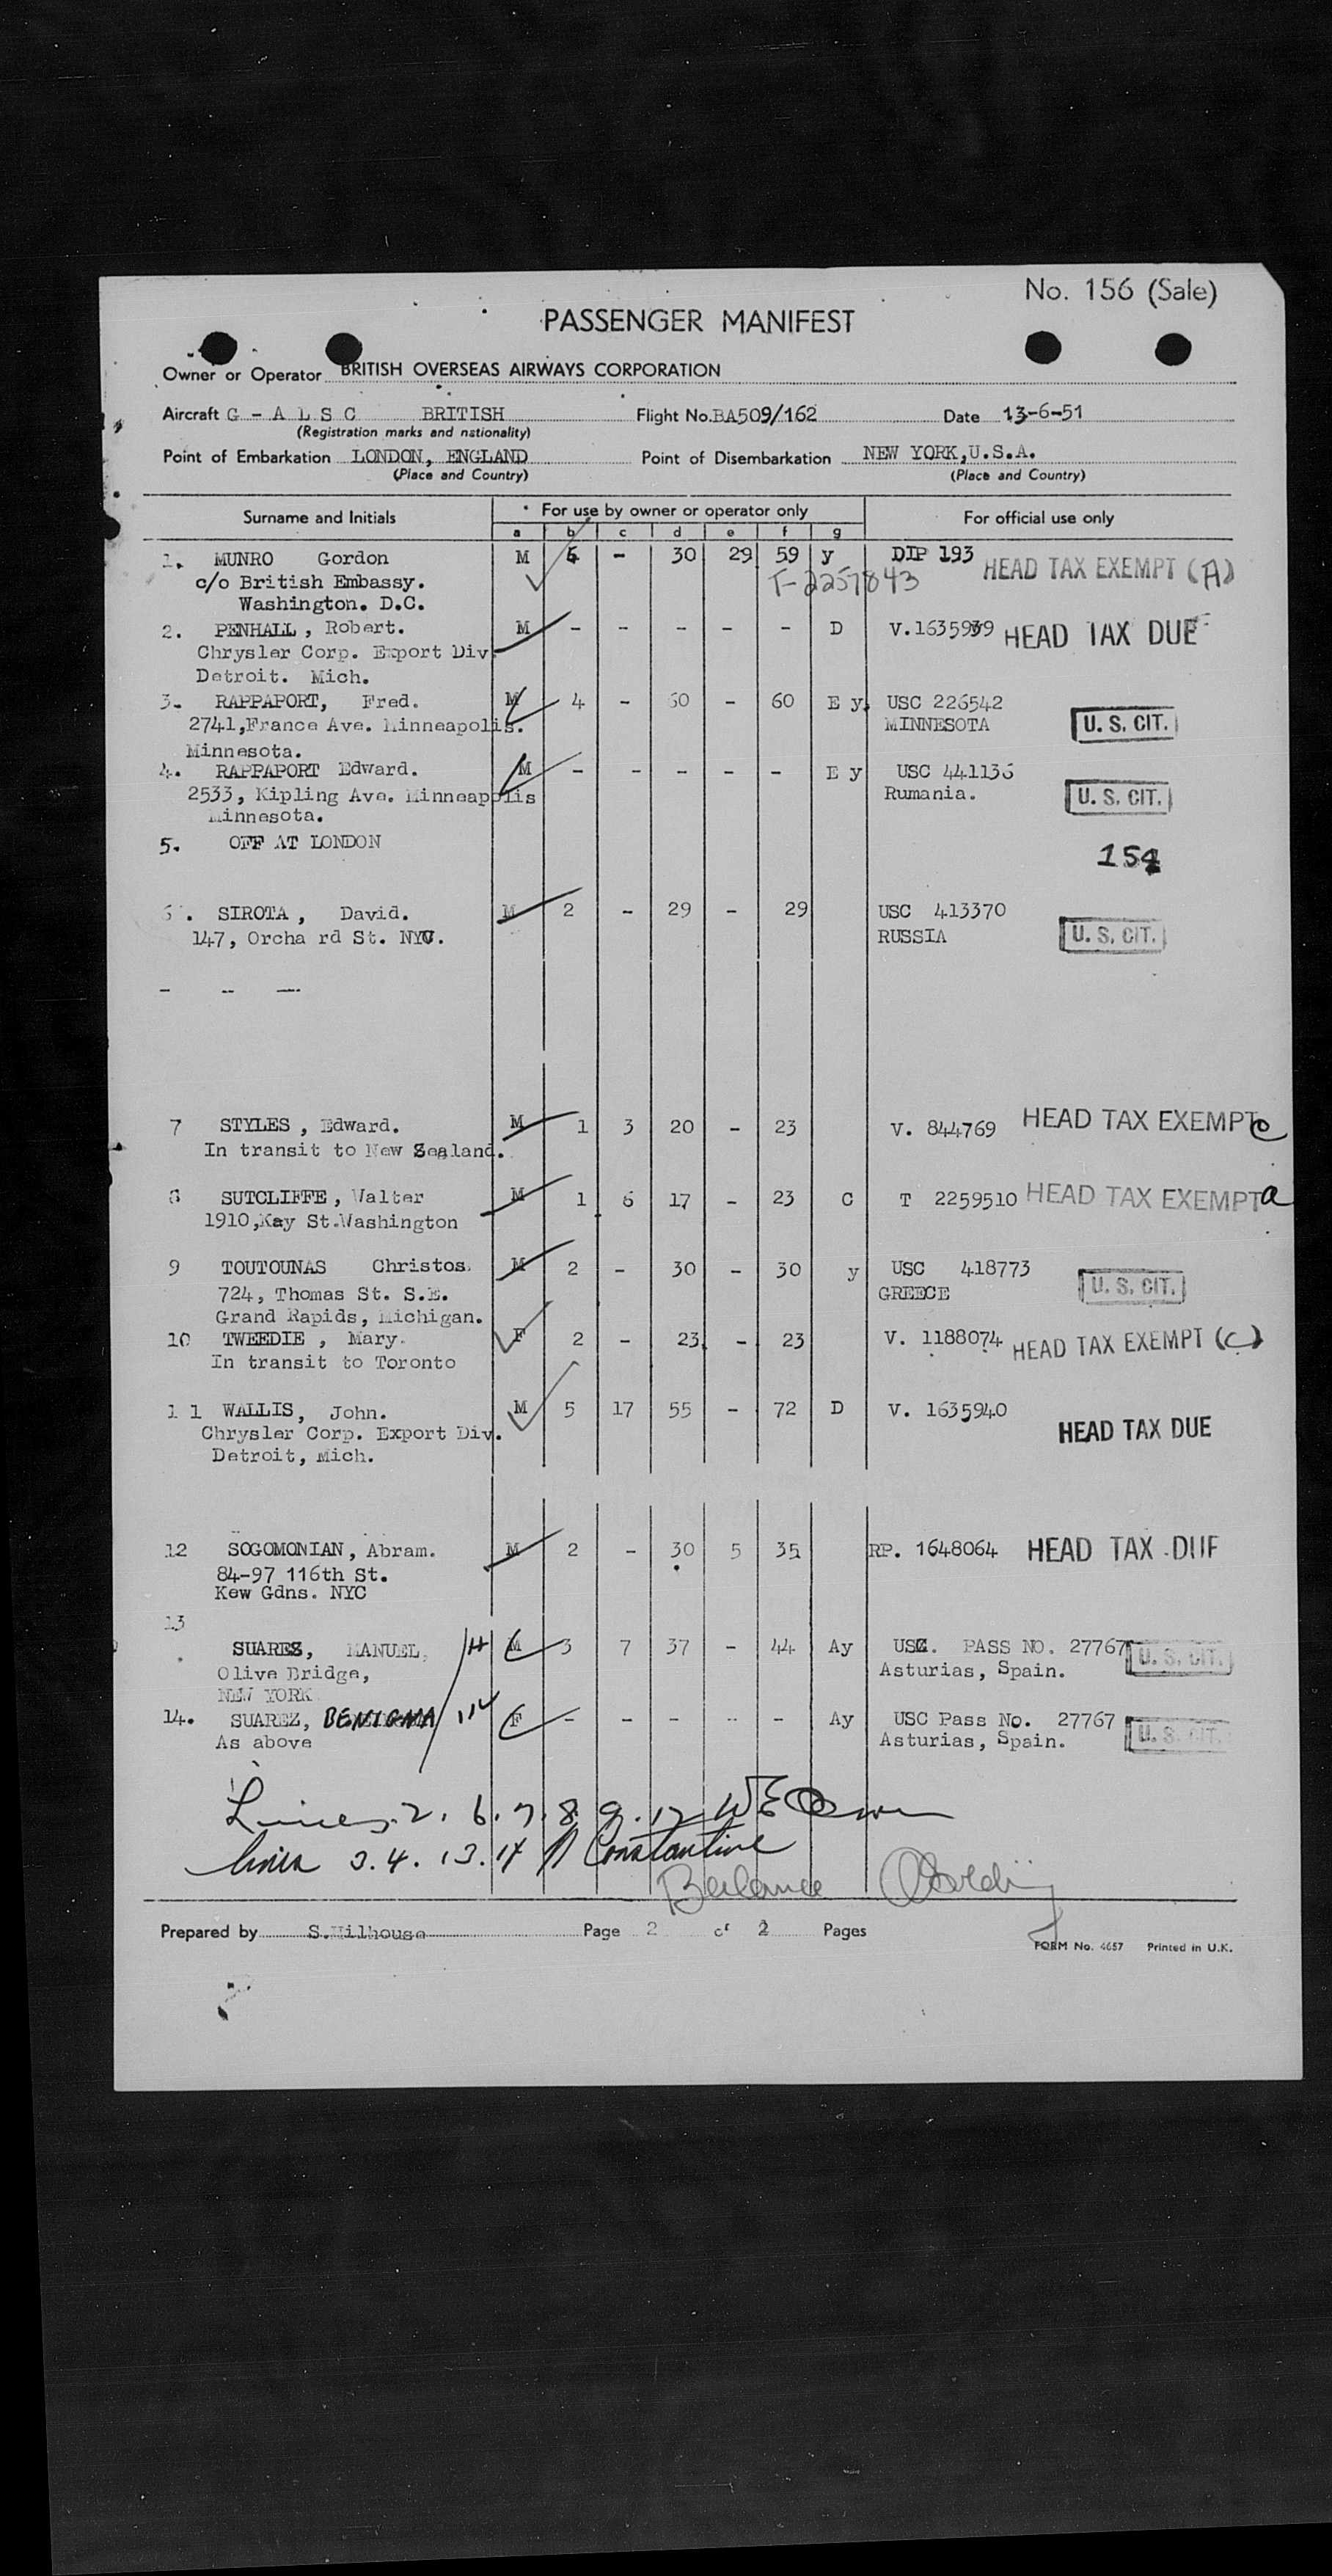 No. 156 (Sale)
PASSENGER MANIFEST
Owner or Operator BRITISH OVERSEAS AIRWAYS CORPORATION
Aircraft G - A L S C BRITISH Flight No. BA509/162 Date 13-6-51
(Registration marks and nationality)
Point of Embarkation LONDON, ENGLAND Point of Disembarkation NEW YORK, U.S.A.
(Place and Country) (Place and Country)
Surname and Initials For use by owner or operator only For official use only
a b c d e f g
1. MUNRO Gordon M - 30 29 59 y DIP 193 HEAD TAX EXEMPT (A)
c/o British Embassy. T-2257843
Washington. D.C.
2. PENHALL, Robert. M - - - - - D V.1635939 HEAD TAX DUE
Chrysler Corp. Export Div.
Detroit. Mich.
3. RAPPAPORT, Fred. M 4 - 60 - 60 E y. USC 226542
2741, France Ave. Minneapolis. MINNESOTA U. S. CIT.
Minnesota.
4. RAPPAPORT Edward. M - - - - - E y USC 441136
2533, Kipling Ave. Minneapolis Rumania. U. S. CIT.
Minnesota.
5. OFF AT LONDON
154
6. SIROTA, David. M 2 - 29 - 29 USC 413370
147, Orcha rd St. NYC. RUSSIA U. S. CIT.
- -- ---
7 STYLES, Edward. M 1 3 20 - 23 V. 844769 HEAD TAX EXEMPT c
In transit to New Zealand.
8 SUTCLIFFE, Walter M 1 6 17 - 23 C T 2259510 HEAD TAX EXEMPT a
1910, Kay St. Washington
9 TOUTOUNAS Christos. M 2 - 30 - 30 y USC 418773
724, Thomas St. S.E. GREECE U. S. CIT.
Grand Rapids, Michigan.
10 TWEEDIE, Mary. F 2 - 23 - 23 V. 1188074 HEAD TAX EXEMPT (C)
In transit to Toronto
1 1 WALLIS, John. M 5 17 55 - 72 D V. 1635940
Chrysler Corp. Export Div. HEAD TAX DUE
Detroit, Mich.
12 SOGOMONIAN, Abram. M 2 - 30 5 35 RP. 1648064 HEAD TAX DUE
84-97 116th St.
Kew Gdns. NYC
13
SUAREZ, MANUEL, M 3 7 37 - 44 Ay USC. PASS NO. 27767 U. S. CIT.
Olive Bridge, Asturias, Spain.
NEW YORK
14. SUAREZ, BENIGNA F - - - -- - Ay USC Pass No. 27767
As above Asturias, Spain. U. S. CIT.
Lines 2. 6. 7. 8. 9. 12
Lines 3. 4. 13. 14 Constantine
Balance
Prepared by S.Milhouse Page 2 of 2 Pages
FORM No. 4657 Printed in U.K.